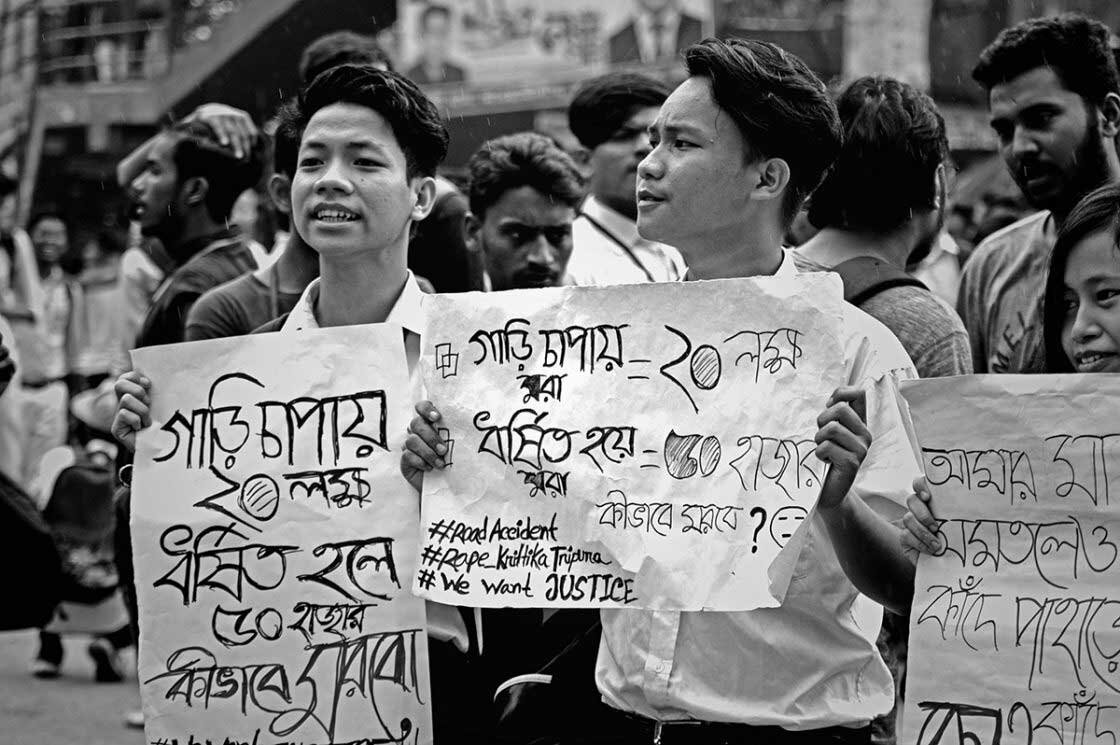 গাড়ি চাপায়
২০ লক্ষ
ধর্ষিত হলে
৫০ হাজার
কীভাবে মরবো
গাড়ি চাপায় = ২০ লক্ষ
মরা
ধর্ষিত হয়ে = ৫০ হাজার
মরা
কীভাবে মরবে ?
#Road Accident
#Rape_Krittika Tripura
# We want JUSTICE
আমার মা
সমতলেও
কাঁদে পাহাড়ে
কাঁদে